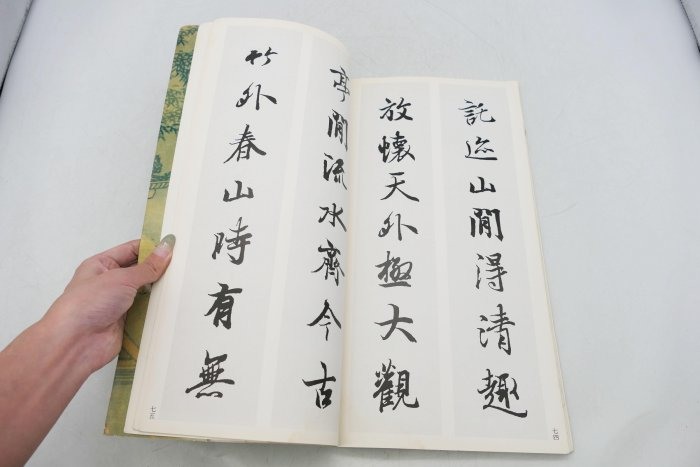 託迹山閒得清趣
放懷天外極大觀
七四
亭閒流水齊今古
竹外春山時有無
七五